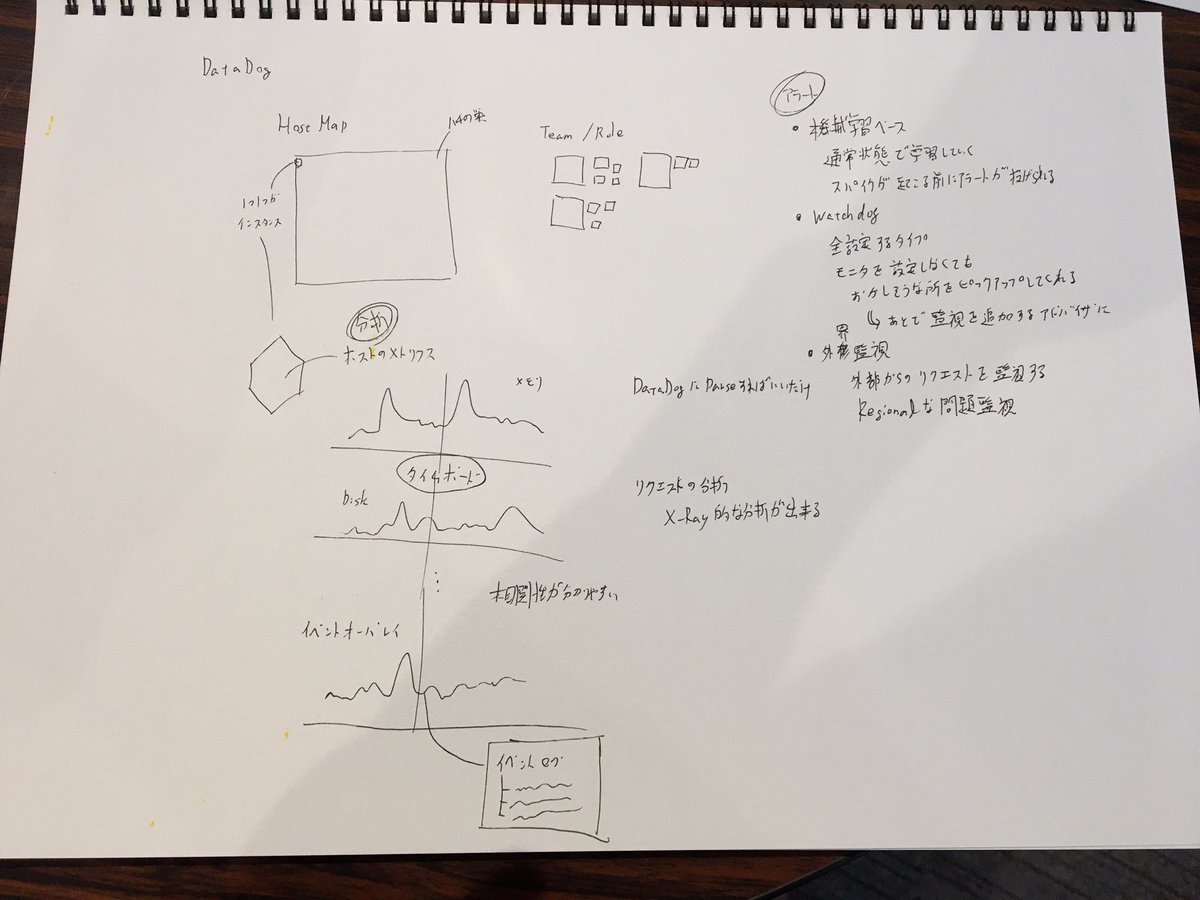 DataDog
Host Map
ハチの巣
1つ1つが
インスタンス
Team / Role
分析
ホストのメトリクス
メモリ
タイムボード
Disk
相関性が分かりやすい
イベントオーバーレイ
イベントログ
DataDogにParseすればいいだけ
リクエストの分析
X-Ray的な分析が出来る
アラート
・機械学習ベース
通常状態で学習していく
スパイクが起こる前にアラートが投げられる
・Watchdog
全設定するタイプ
モニタを設定しなくても
おかしそうな所をピックアップしてくれる
↳あとで監視を追加するアドバイザに
・外形監視
外部からのリクエストを監視する
Regionalな問題監視